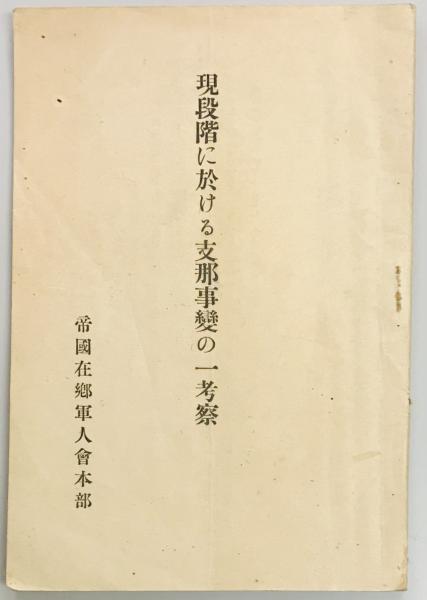 現段階に於ける支那事變の一考察
帝國在鄕軍人會本部